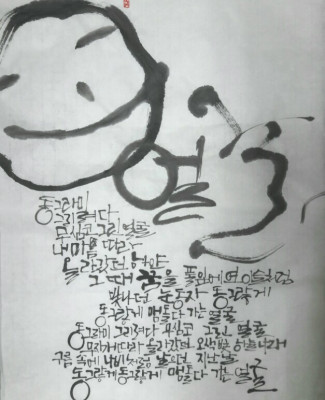 얼굴
동그라미
그리려다
무심코 그린 얼굴
내 마음 따라
올라갔던 하얀
그 때 꿈을 풀잎에 연 이슬처럼
빛나던 눈동자 동그랗게
동그랗게 맴돌다 가는 얼굴
동그라미 그리려다 무심코 그린 얼굴
무지개 따라 올라갔던 오색빛 하늘나래
구름 속에 나비처럼 날으던 지난날
동그랗게 동그랗게 맴돌다 가는 얼굴